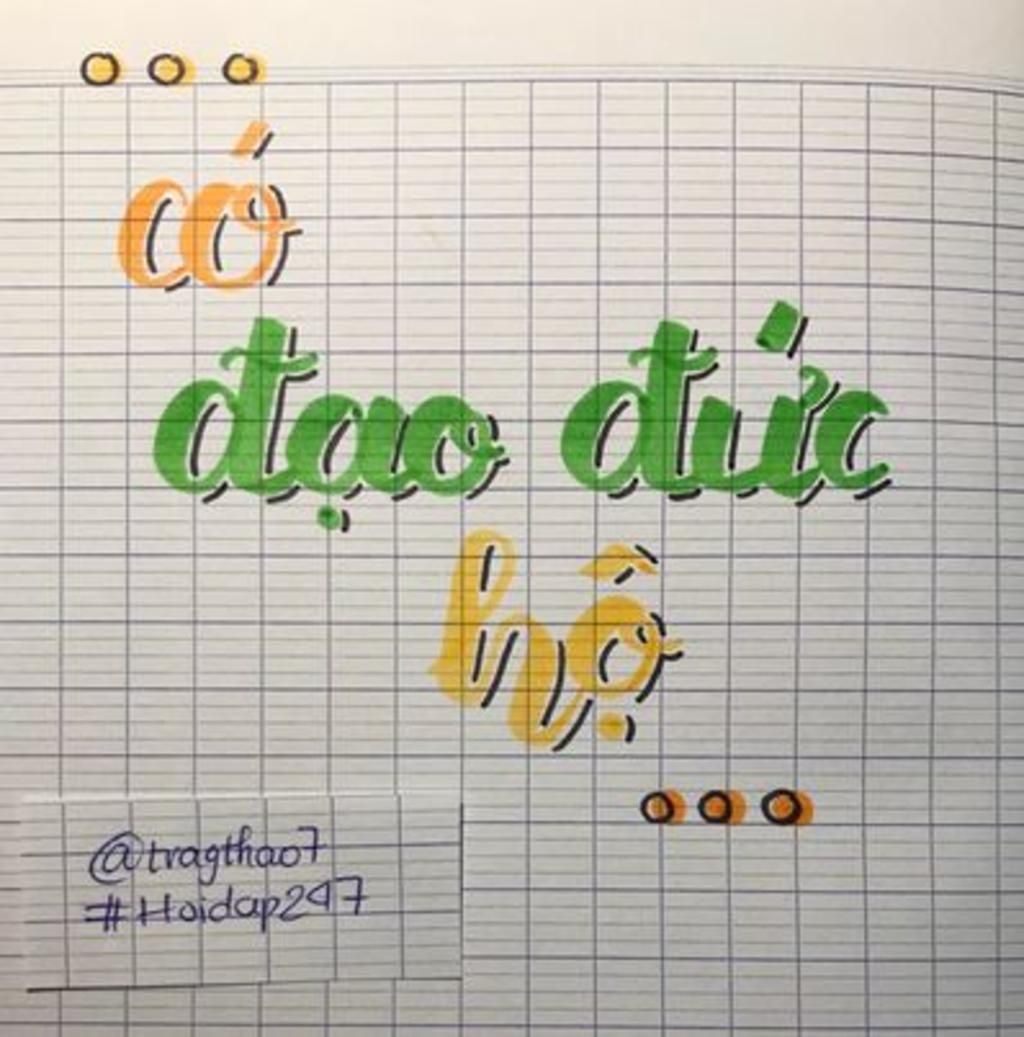 có
đạo đức
hộ
@tragthao7
#Hoidap247